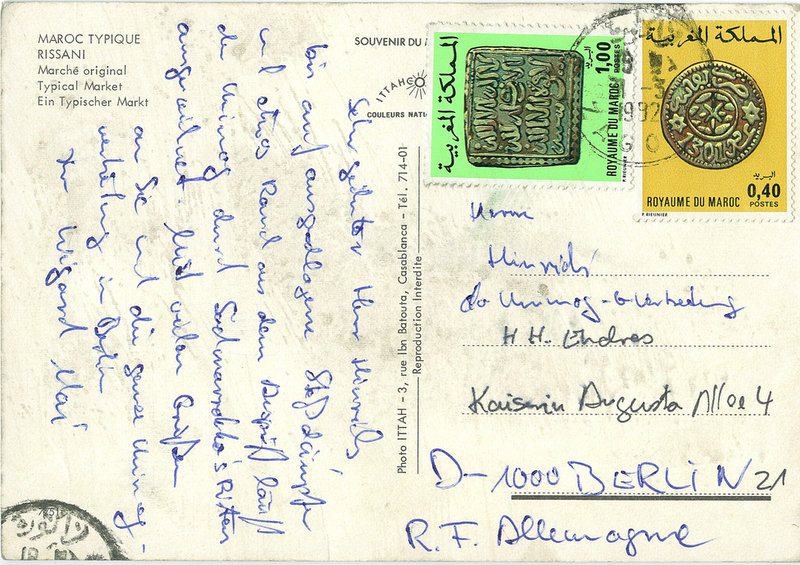 MAROC TYPIQUE
RISSANI
Marché original
Typical Market
Ein Typischer Markt
SOUVENIR DU
ITTAH
COULEURS NATU
Sehr geehrter Herr Hinrichs
bis auf ausgeschlagene Stoßdämpfer
und etwas Rand aus dem läuft
der Unimog durch Südmarokko's Pisten
Mit vielen Grüßen
an Sie und die ganze Unimog-
in Berlin
Ihr Wigand
Photo ITTAH - 3, rue Ibn Batouta, Casablanca - Tél. 714-01
Reproduction Interdite
المملكة المغربية
البريد
1,00
POSTES
ROYAUME DU MAROC
P. BEUNIER
المملكة المغربية
البريد
0,40
POSTES
ROYAUME DU MAROC
P. BEUNIER
Herrn
Hinrichs
c/o Unimog-G-Vertretung
H H. Endres
Kaiserin Augusta Allee 4
D-1000 BERLIN 21
R.F. Allemagne